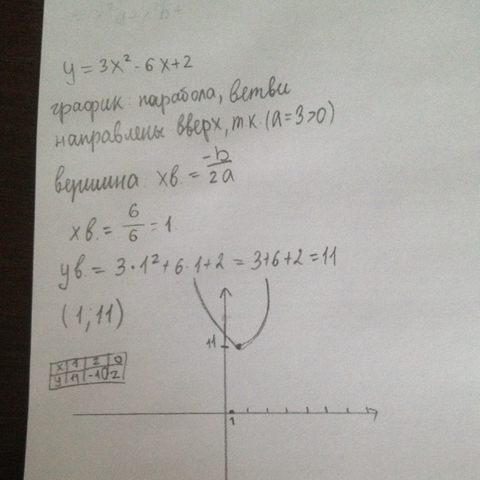 y = 3x² - 6x + 2
график: парабола, ветви
направлены вверх, т.к. (a = 3 > 0)
вершина: xв. = -b/2a
xв. = 6/6 = 1.
yв. = 3 · 1² + 6 · 1 + 2 = 3 + 6 + 2 = 11
(1; 11)
11
x 1 2 0
y 11 -10 2
1